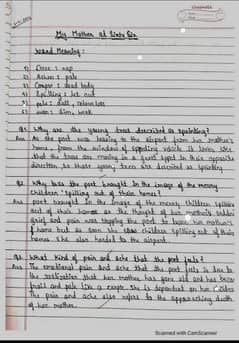 My Mother at Sixty Six
Word Meaning :
1) Doze : nap
2) Ashen : pale
3) Corpse : dead body
4) Spilling : let out
5) pale : dull, colourless
6) wan : dim, weak
Q1 Why are the young trees described as sprinting?
Ans As the poet was leaving to the airport from her mother's
home, from the window of speeding vehicle it looks like
that the trees are moving in a great speed in their opposite
direction, so these young trees are described as sprinting
Q2 Why has the poet brought in the image of the merry
children 'spilling out of their homes'?
Ans poet brought in the image of the merry children spilling
out of their homes as the thought of her mother's
grief and pain was stopping the poet to leave her mother's
home but as soon she saw children spilling out of their
homes she also headed to the airport.
Q3 What kind of pain and ache that the poet feels?
Ans The emotional pain and ache that the poet feels is due to
the realization that her mother has gone old and has been
frail and pale like a corpse. She is dependent on her
The pain and ache also refers to the approaching death
of her mother.
Scanned with CamScanner